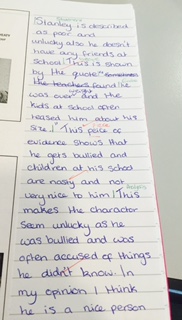 Stanley is described
as poor and
unlucky also he doesn't
have any friends at
school. This is shown
by the quote "Sometimes
the teachers found he
was over weight and the
kids at school often
teased him about his
size". This peice of
evidence shows that
he gets bullied and
children at his school
are nasty and not
very nice to him. This
makes the character
seem unlucky as he
was bullied and was
often accused of things
he didn't know. In
my opinion I think
he is a nice person